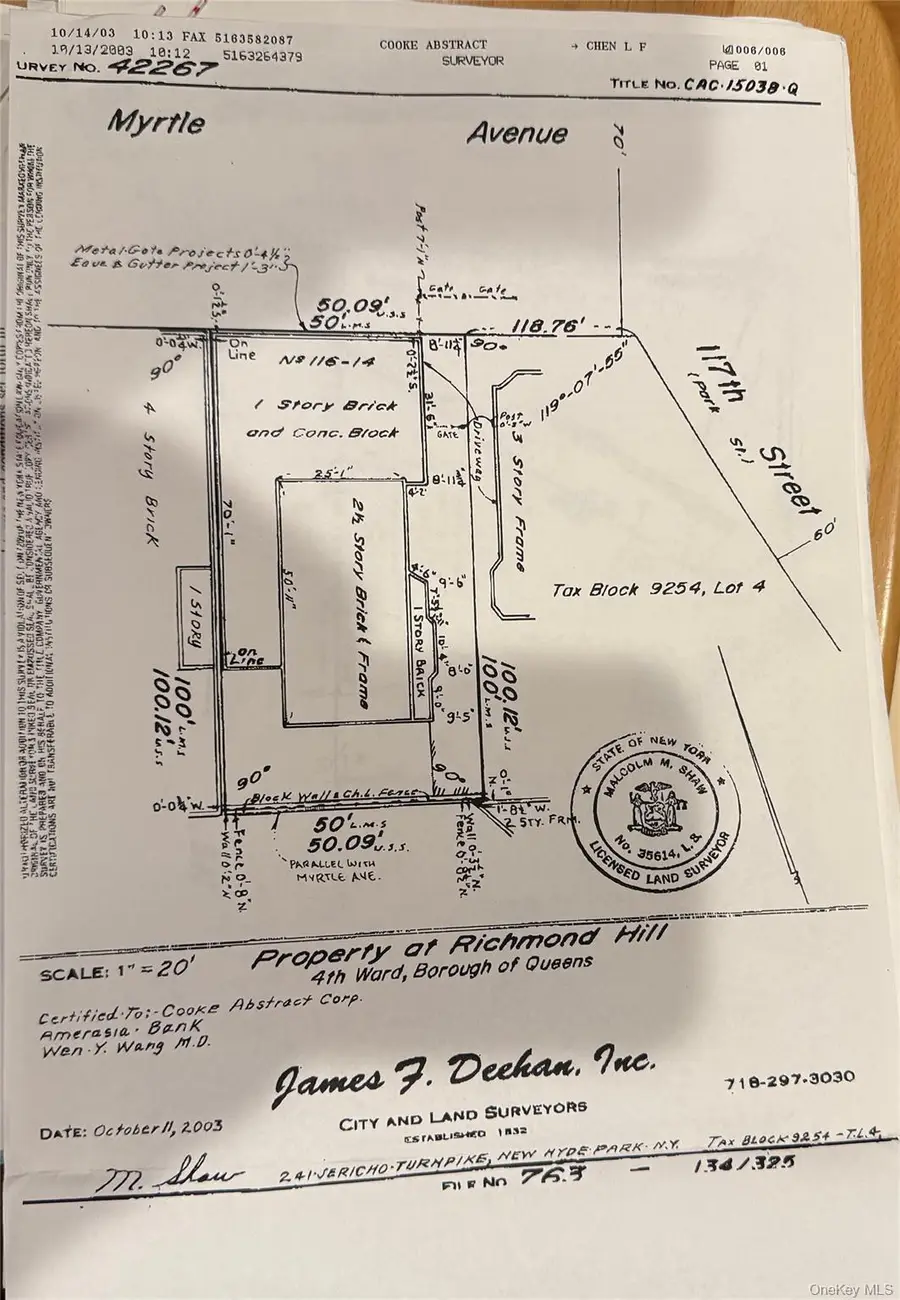 10/14/03 10:13 FAX 5163582087 COOKE ABSTRACT → CHEN L F 006/006
10/13/2003 10:12 5163264379 SURVEYOR PAGE 01
URVEY NO. 42267
TITLE NO. CAC-15038-Q
Myrtle Avenue
70'
Metal Gate Projects 0'-4½"
Eave & Gutter Project 1'-3"
Gate Gate
50.09' U.S.S
50' L.M.S
118.76'
On Line
Nº 116-14
8'-11¼
90°
90°
119°-07'-55"
117th Street
(Park St.)
60'
1 Story Brick
and Conc. Block
31'-6"
GATE
Post
Driveway
3 Story Frame
4 Story Brick
25'-1"
4'-2"
8'-11"
70'-1"
50'-11"
2½ Story Brick & Frame
9'-6"
1 STORY BRICK
10'-4"
8'-6"
9'-0"
9'-5"
Tax Block 9254, Lot 4
1 STORY
On Line
100' L.M.S
100.12' U.S.S
100.12' U.S.S
100' L.M.S
90°
90°
Block Wall & Ch. L. Fence
50' L.M.S
50.09' U.S.S.
PARALLEL WITH
MYRTLE AVE.
Fence 0'-8" N.
Wall 0'-2" N
1'-8½" W.
2 STY. FRM.
STATE OF NEW YORK
MALCOLM M. SHAW
No. 35614, L.S.
LICENSED LAND SURVEYOR
SCALE: 1" = 20'
Property at Richmond Hill
4th Ward, Borough of Queens
Certified To:- Cooke Abstract Corp.
Amerasia Bank
Wen Y. Wang M.D.
James F. Deehan, Inc.
718-297-3030
CITY AND LAND SURVEYORS
ESTABLISHED 1832
DATE: October 11, 2003
M. Shaw
241 JERICHO TURNPIKE, NEW HYDE PARK N.Y.
TAX BLOCK 9254 - T.L.4
FILE NO 763 - 134/325
OneKey MLS